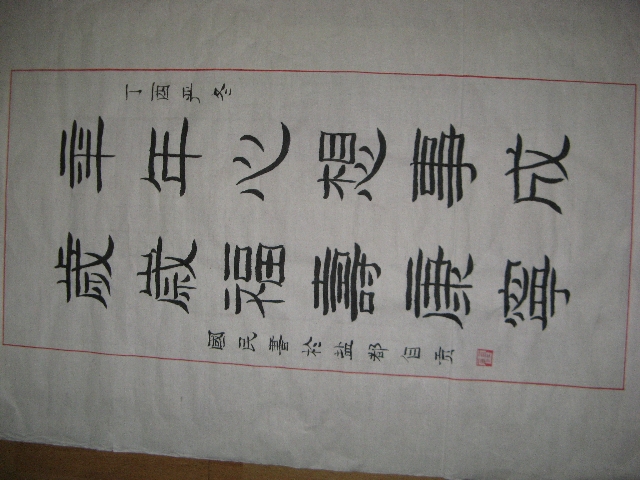 丁酉年冬
年年心想事成
歲歲福壽康寧
國民書於盐都自贡